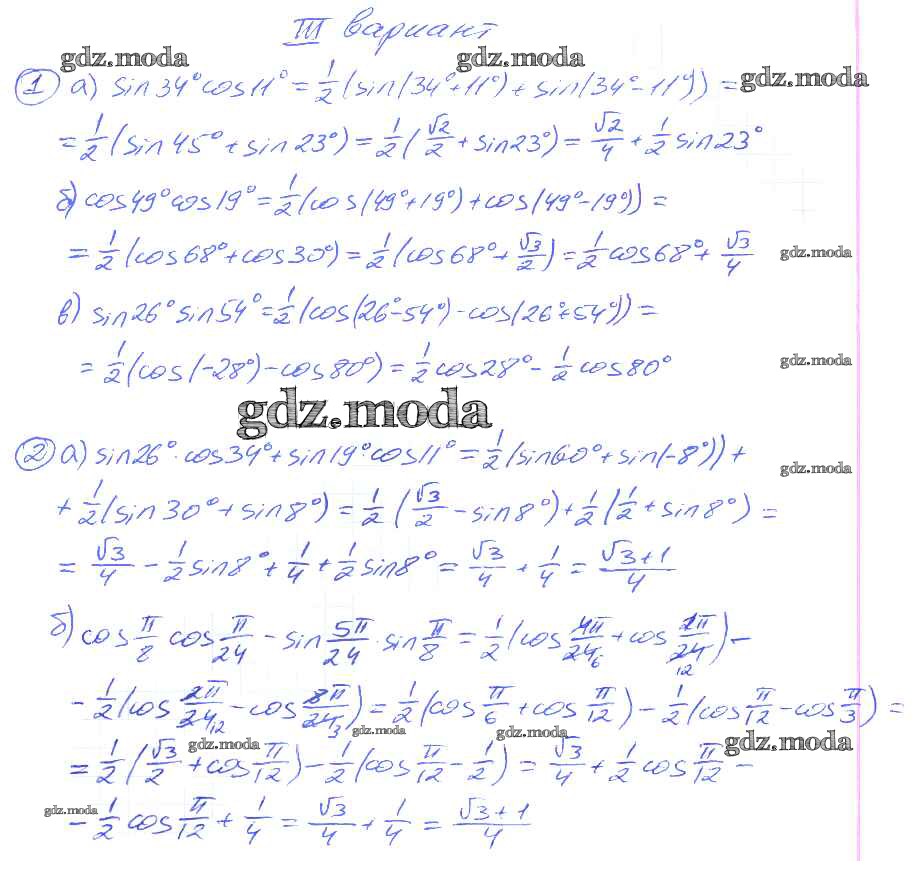 III вариант
gdz.moda gdz.moda gdz.moda
1 а) sin34°cos11° = 1/2(sin(34°+11°)+sin(34°-11°)) =
= 1/2(sin45°+sin23°) = 1/2(√2/2+sin23°) = √2/4 + 1/2 sin23°
б) cos49°cos19° = 1/2(cos(49°+19°)+cos(49°-19°)) =
= 1/2(cos68°+cos30°) = 1/2(cos68°+√3/2) = 1/2 cos68° + √3/4 gdz.moda
в) sin26°sin54° = 1/2(cos(26°-54°)-cos(26°+54°)) =
= 1/2(cos(-28°)-cos80°) = 1/2 cos28° - 1/2 cos80° gdz.moda
gdz.moda
2 а) sin26°·cos34°+sin19°cos11° = 1/2(sin60°+sin(-8°)) + gdz.moda
+ 1/2(sin30°+sin8°) = 1/2(√3/2 - sin8°) + 1/2(1/2 + sin8°) =
= √3/4 - 1/2 sin8° + 1/4 + 1/2 sin8° = √3/4 + 1/4 = (√3+1)/4
б) cos π/8 cos π/24 - sin 5π/24 · sin π/8 = 1/2(cos 4π/24 6 + cos 2π/24 12) -
- 1/2(cos 2π/24 12 - cos 8π/24 3) = 1/2(cos π/6 + cos π/12) - 1/2(cos π/12 - cos π/3) =
gdz.moda gdz.moda gdz.moda gdz.moda
= 1/2(√3/2 + cos π/12) - 1/2(cos π/12 - 1/2) = √3/4 + 1/2 cos π/12 -
gdz.moda - 1/2 cos π/12 + 1/4 = √3/4 + 1/4 = (√3+1)/4